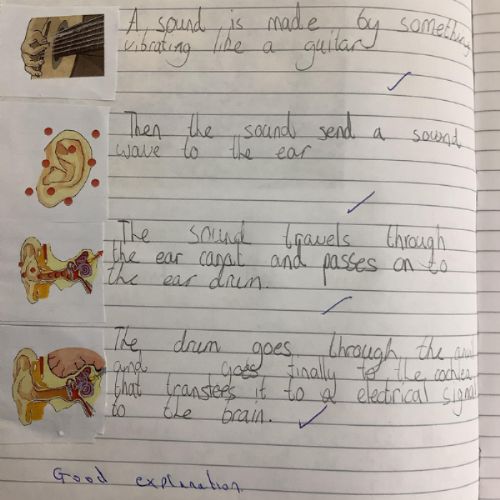 A sound is made by something
vibrating like a guitar
Then the sound send a sound
wave to the ear
The sound travels through
the ear canal and passes on to
the ear drum.
The drum goes through, the
and goes finally to the cochlea
that transfers it to a electrical signal
to the brain.
Good explanation